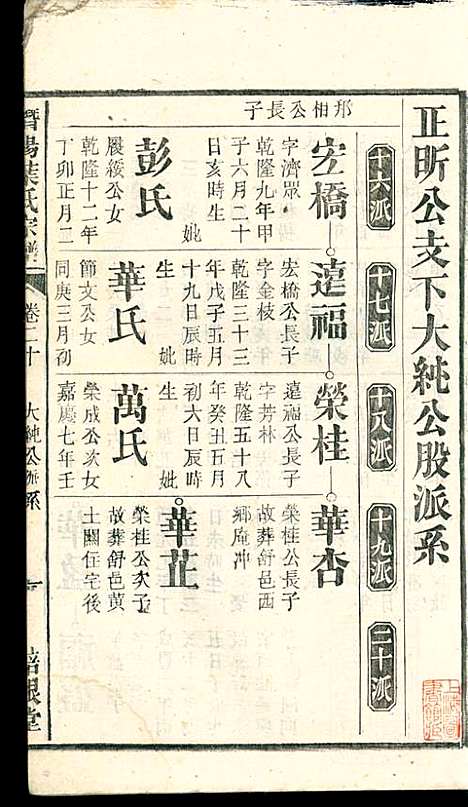 正昕公支下大純公股派系
十六派
十七派
十八派
十九派
二十派
邦相公長子
宏橋
字濟眾
乾隆九年甲
子六月二十
日亥時生
妣
彭氏
殿綬公女
乾隆十二年
丁卯正月二
遠福
宏橋公長子
字金枝
乾隆三十三
年戊子五月
十九日辰時
生 妣
華氏
節文公女
同庚三月初
榮桂
遠福公長子
字芳林
乾隆五十八
年癸丑五月
初六日辰時
生 妣
萬氏
榮成公次女
嘉慶七年壬
華杏
榮桂公長子
故葬舒邑西
鄉庵冲
華芷
榮桂公次子
故葬舒邑黃
土關住宅後
陽葉氏宗譜
卷二十
大純公派系
培根堂